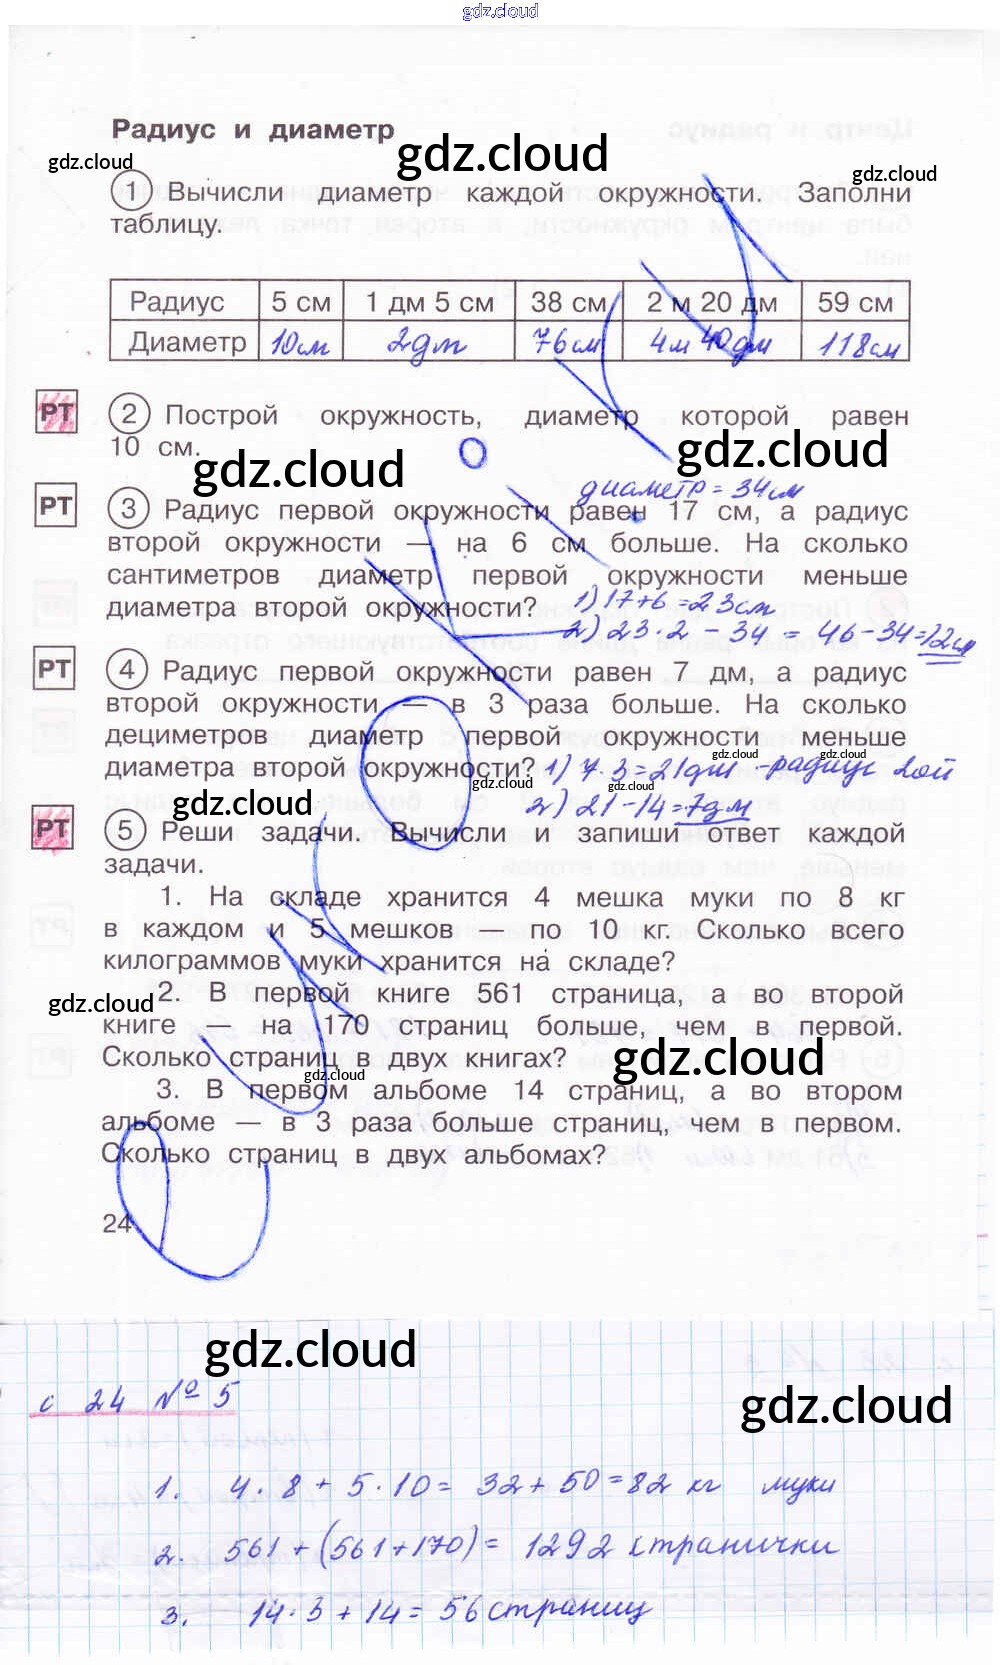 gdz.cloud
Радиус и диаметр
gdz.cloud
gdz.cloud
gdz.cloud
1 Вычисли диаметр каждой окружности. Заполни
таблицу.
Радиус 5 см 1 дм 5 см 38 см 2 м 20 дм 59 см
Диаметр 10см 2дм 76см 4м 40дм 118см
РТ 2 Построй окружность, диаметр которой равен
10 см.
gdz.cloud
gdz.cloud
диаметр = 34см
РТ 3 Радиус первой окружности равен 17 см, а радиус
второй окружности — на 6 см больше. На сколько
сантиметров диаметр первой окружности меньше
диаметра второй окружности? 1) 17+6=23см
2) 23·2 - 34 = 46-34=12см
РТ 4 Радиус первой окружности равен 7 дм, а радиус
второй окружности — в 3 раза больше. На сколько
дециметров диаметр первой окружности меньше
gdz.cloud
gdz.cloud
диаметра второй окружности? 1) 7·3=21дм - радиус 2ой
gdz.cloud
2) 21-14=7дм
gdz.cloud
РТ 5 Реши задачи. Вычисли и запиши ответ каждой
задачи.
1. На складе хранится 4 мешка муки по 8 кг
в каждом и 5 мешков — по 10 кг. Сколько всего
килограммов муки хранится на складе?
gdz.cloud
2. В первой книге 561 страница, а во второй
книге — на 170 страниц больше, чем в первой.
Сколько страниц в двух книгах?
gdz.cloud
gdz.cloud
3. В первом альбоме 14 страниц, а во втором
альбоме — в 3 раза больше страниц, чем в первом.
Сколько страниц в двух альбомах?
24
gdz.cloud
с 24 № 5
gdz.cloud
1. 4·8+5·10= 32+50=82 кг муки
2. 561+(561+170)= 1292 странички
3. 14·3+14=56 страниц